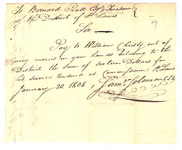 To Bernard Pratte Esqr Treasurer
of the District of St Louis
Sir
Pay to William Christy out of
any monies in your hands belonging to the
District the sum of sixteen Dollars for
his services rendered as Commissioner St Louis
January 20. 1808